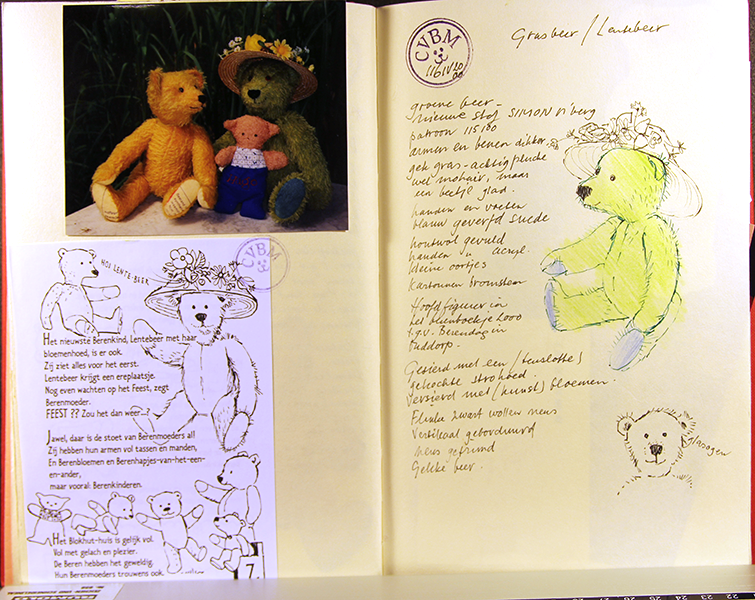 HOI LENTE-BEER
CVBM
Het nieuwste Berenkind, Lentebeer met haar
bloemenhoed, is er ook.
Zij ziet alles voor het eerst.
Lentebeer krijgt een ereplaatsje.
Nog even wachten op het Feest, zegt
Berenmoeder.
FEEST ?? Zou het dan weer...?
Jawel, daar is de stoet van Berenmoeders al!
Zij hebben hun armen vol tassen en manden,
En Berenbloemen en Berenhapjes-van-het-een-
en-ander,
maar vooral: Berenkinderen.
Het Blokhut-huis is gelijk vol.
Vol met gelach en plezier.
De Beren hebben het geweldig.
Hun Berenmoeders trouwens ook.
7.
CVBM
Grasbeer / Lentebeer
groene beer -
nieuwe stof SIMON
patroon 115180
armen en benen dikker
gek gras-achtig pluche
wel mohair, maar
een beetje glad.
handen en voeten
blauw geverfd suede
houtwol gevuld
handen " acryl.
kleine oortjes
Kartonnen bromstem
Hoofdfiguur in
het berenboekje 2000
t.g.v. Berendag in
Ruddorp.
Gesierd met een (tenslotte)
gekochte strohoed.
Versierd met (kunst) bloemen.
Flinke zwart wollen neus
Vertikaal geborduurd
neus getrimd
Gelikte beer.
glasogen